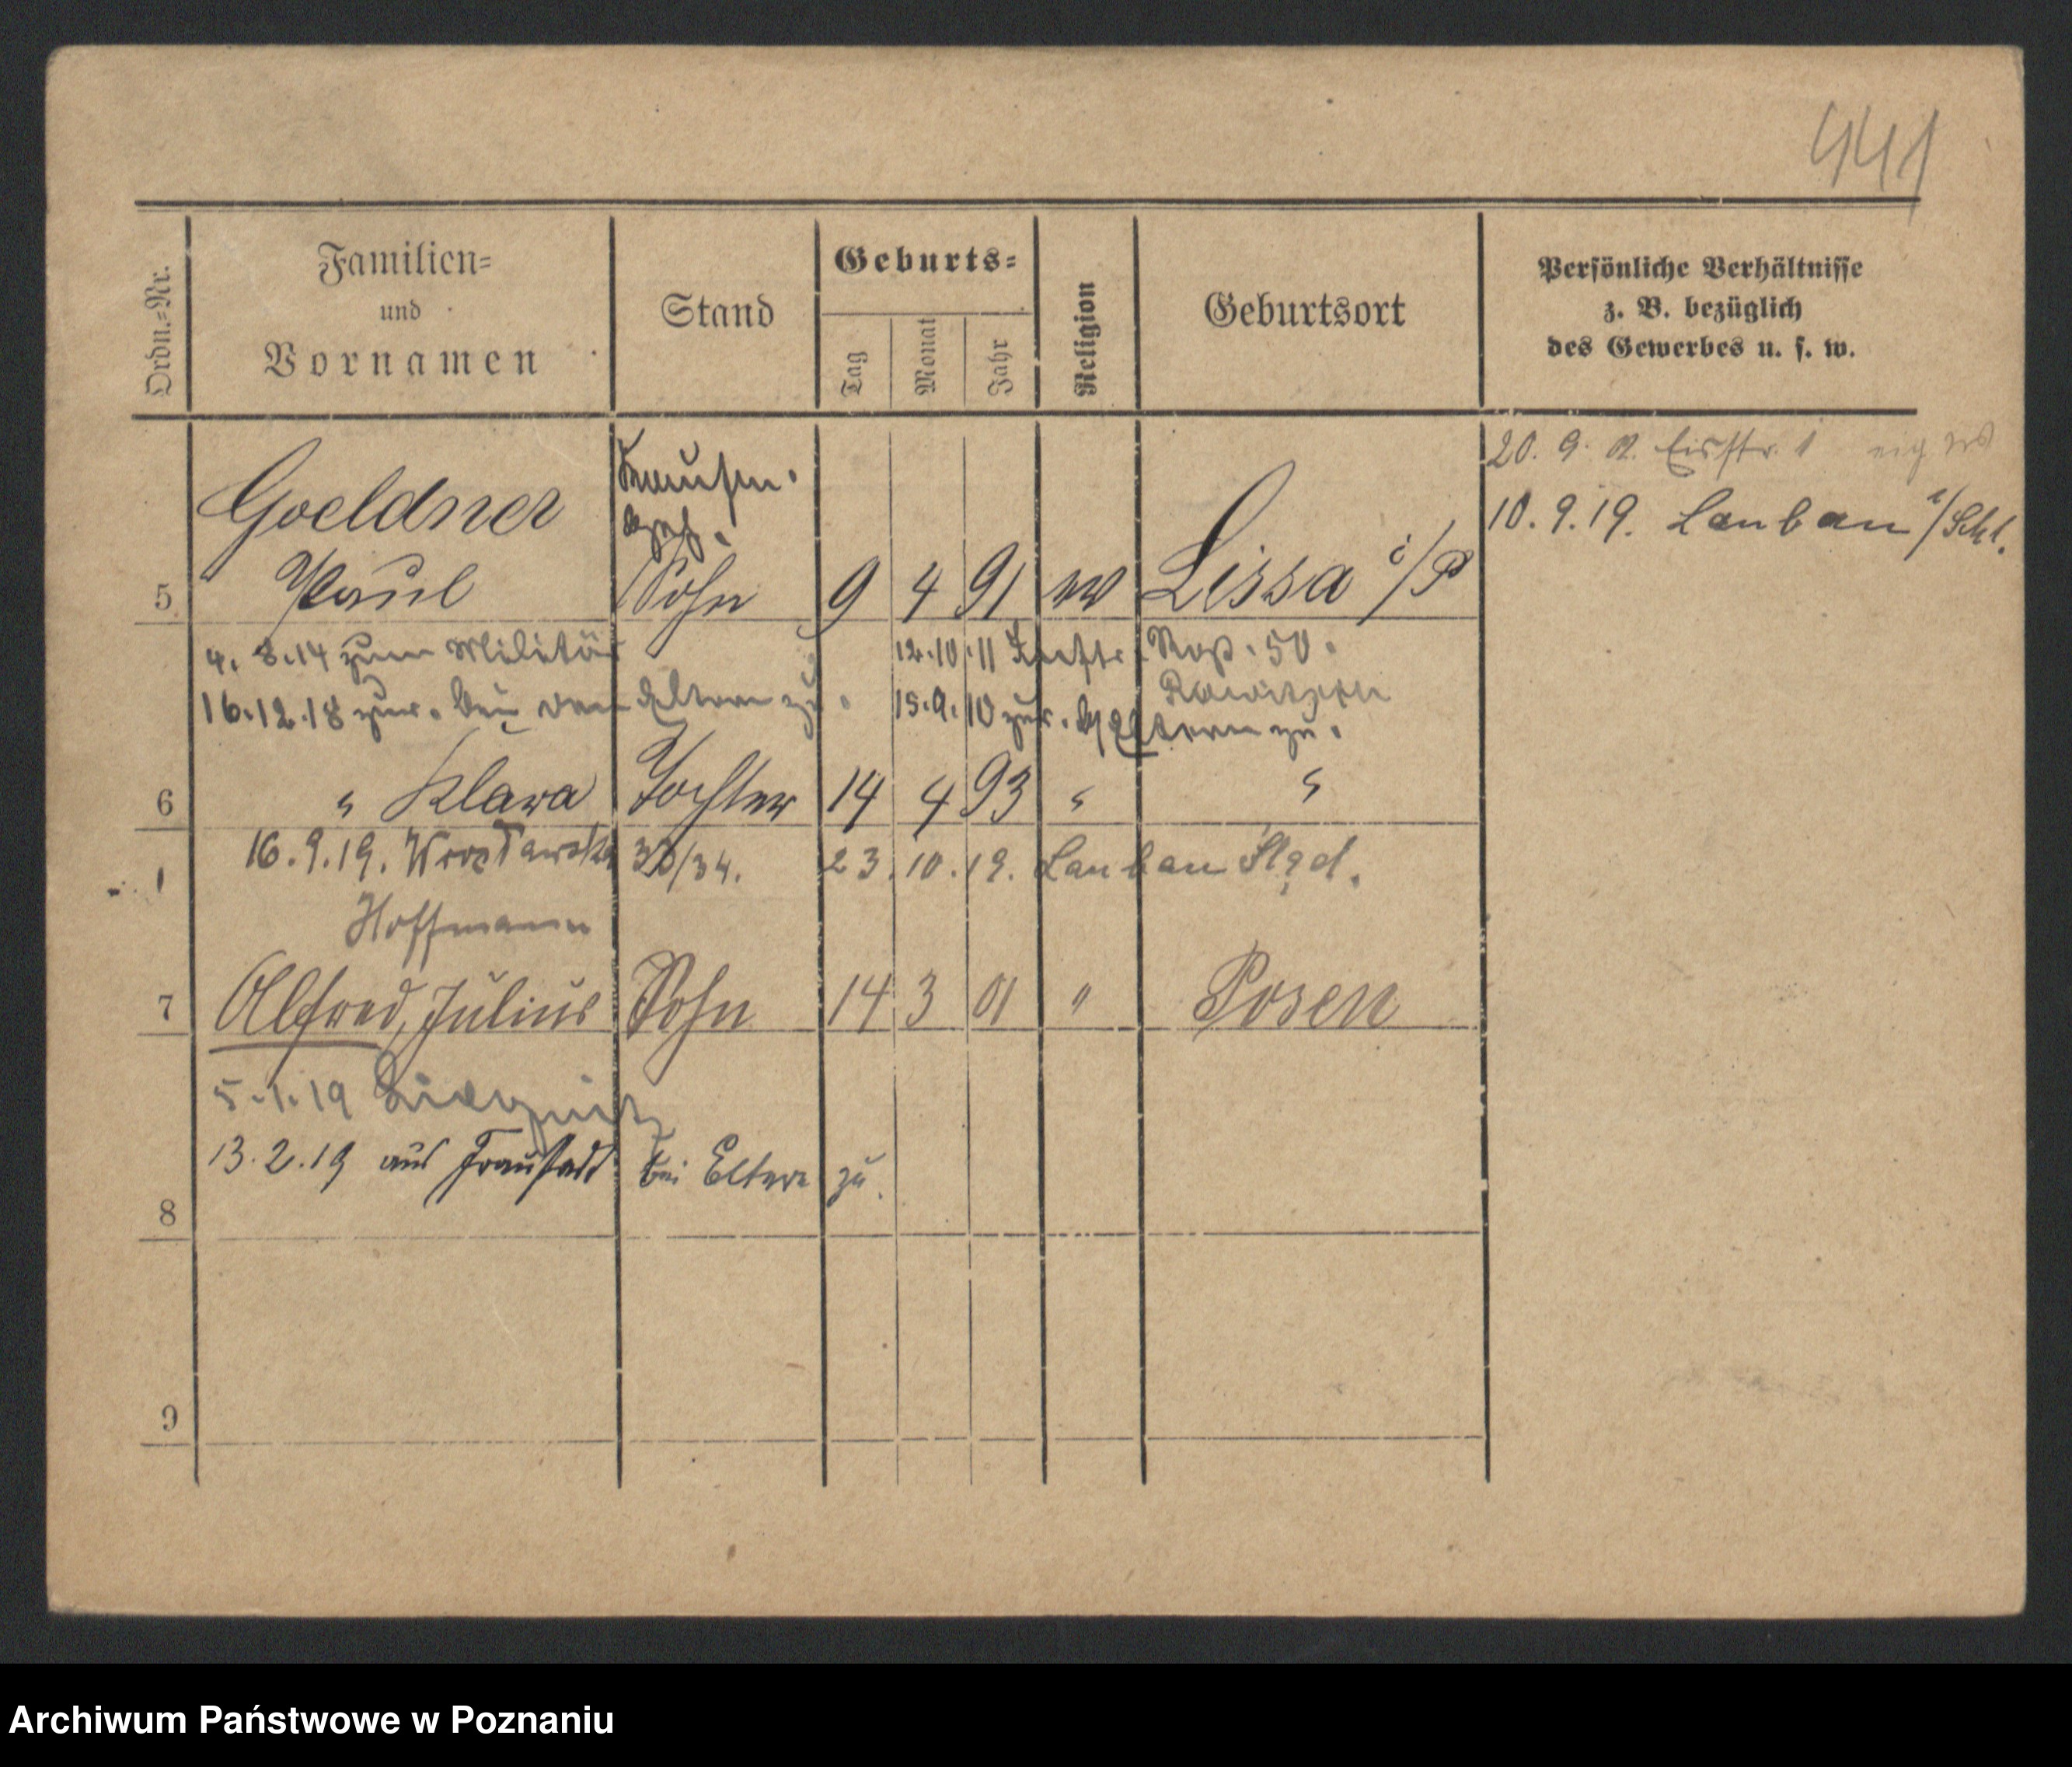 441
Ordn.=Nr.
Familien=
und
Vornamen
Stand
Geburts=
Tag
Monat
Jahr
Religion
Geburtsort
Persönliche Verhältnisse
z. B. bezüglich
des Gewerbes u. s. w.
20. 9. Eisstr. 1
10. 9. 19. Lauban i/Schl.
Goeldner
5 Paul Sohn 9 4 91 Lissa i/P
4. 8. 14 zum Militär 12. 10. 11 50.
16. 12. 18 zur. bei den Eltern zu. 15. 9. 10 zur. Eltern zu.
6 " Klara Tochter 14 4 93 " "
16. 9. 19. Wrocławska 33/34. 23. 10. 19. Lauban
Hoffmann
7 Alfred, Julius Sohn 14 3 01 " Posen
5. 1. 19 Liegnitz
13. 2. 19 aus Fraustadt bei Eltern zu.
8
9
Archiwum Państwowe w Poznaniu